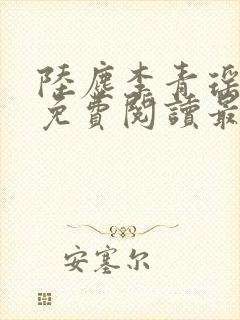 陸塵李青瑤
免費閱讀最
安塞尔